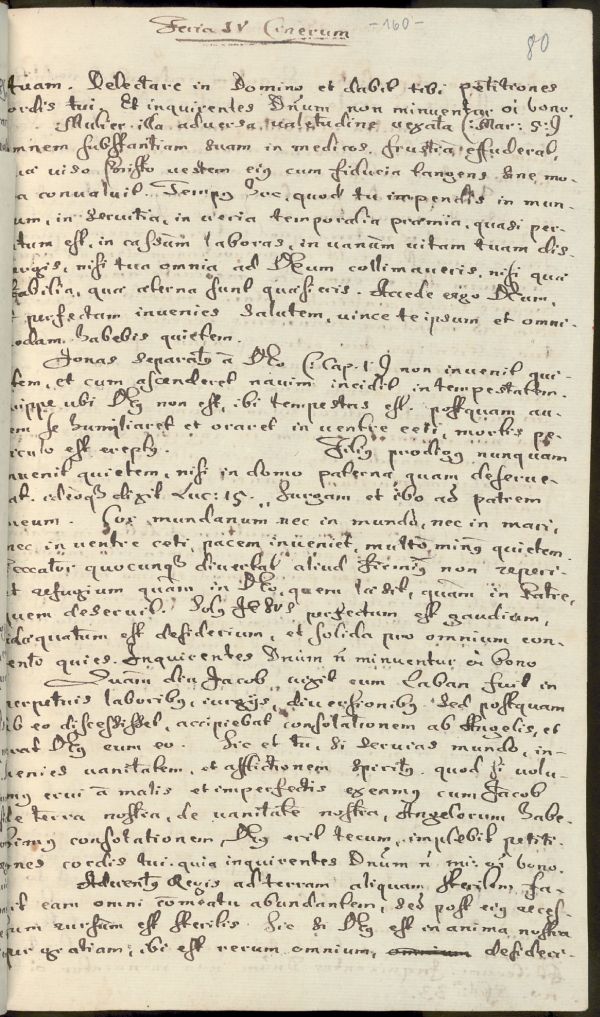 Feria IV Cinerum
-160-
80
tuam. Delectare in Domino et dabit tibi petitiones
ordis tui. Et inquirentes Dnūm non minuentur oī bono.
Mulier illa adversa valetudine vexata (: Mar: 5:)
mnem substantiam suam in medicos frustra effuderat,
viso Xsto vestem eiꝰ cum fiducia tangens sine mo-
a convaluit. Tempꝰ hoc, quod tu impendis in mun-
um, in servitia, in temporalia præmia, quasi per-
itum est, in cassum laboras, in vanum vitam tuam dis-
nisi tua omnia ad Dēum collimaveris, nisi quæ
abilia, quæ æterna sunt quæsieris. Accede ergo Dēum,
t perfectam invenies salutem, vince te ipsum et omni-
odam habebis quietem.
Jonas separatꝰ à Dēo (: Cap. 1:) non invenit qui-
tem, et cum ascenderet navim incidit in tempestatem.
uippe ubi Dēꝰ non est, ibi tempestas est. postquam au-
em se humiliaret et oraret in ventre ceti, mortis pe-
iculo est ereptꝰ. Filiꝰ prodigꝰ nunquam
nvenit quietem, nisi in domo paterna, quam deserue-
at. ideoqꝫ dixit Luc: 15. Surgam et ibo ad patrem
meum. Cor mundanum nec in mundo, nec in mari,
nec in ventre ceti, pacem inveniet, multò minꝰ quietem.
Peccator quocunqꝫ divertat aliud firmiꝰ non reperi-
t refugium quàm in Dēo, quem læsit, quàm in Patre,
quem deseruit. Solꝰ JESUS perfectum est gaudium,
adæquatum est desiderium, et solida pro omnium con-
ento quies. Inquirentes Dnūm ñ minuentur oī bono
Quam diu Jacob vixit cum Laban fuit in
perpetuis laboribꝰ, iurgijs, diversionibꝰ sed postquam
ab eo discessisset, accipiebat consolationem ab Angelis, et
erat Dēꝰ cum eo. Sic et tu, si servias mundo, in-
venies vanitatem, et afflictionem spiritꝰ. quod si volu-
mꝰ erui à malis et imperfectis exeamꝰ cum Jacob
de terra nostra, de vanitate nostra, Angelorum habe-
bimꝰ consolationem, Dēꝰ erit tecum, implebit petiti-
ones cordis tui. quia inquirentes Dnūm ñ mi: oī bono.
Adventꝰ Regis ad terram aliquam sterilem, fa-
it eam omni com̄eatu abundantem, sed post eiꝰ reces-
sum rursum est sterilis. Sic si Dēꝰ est in anima nostra
per gratiam, ibi est rerum omnium, omnium desideri-